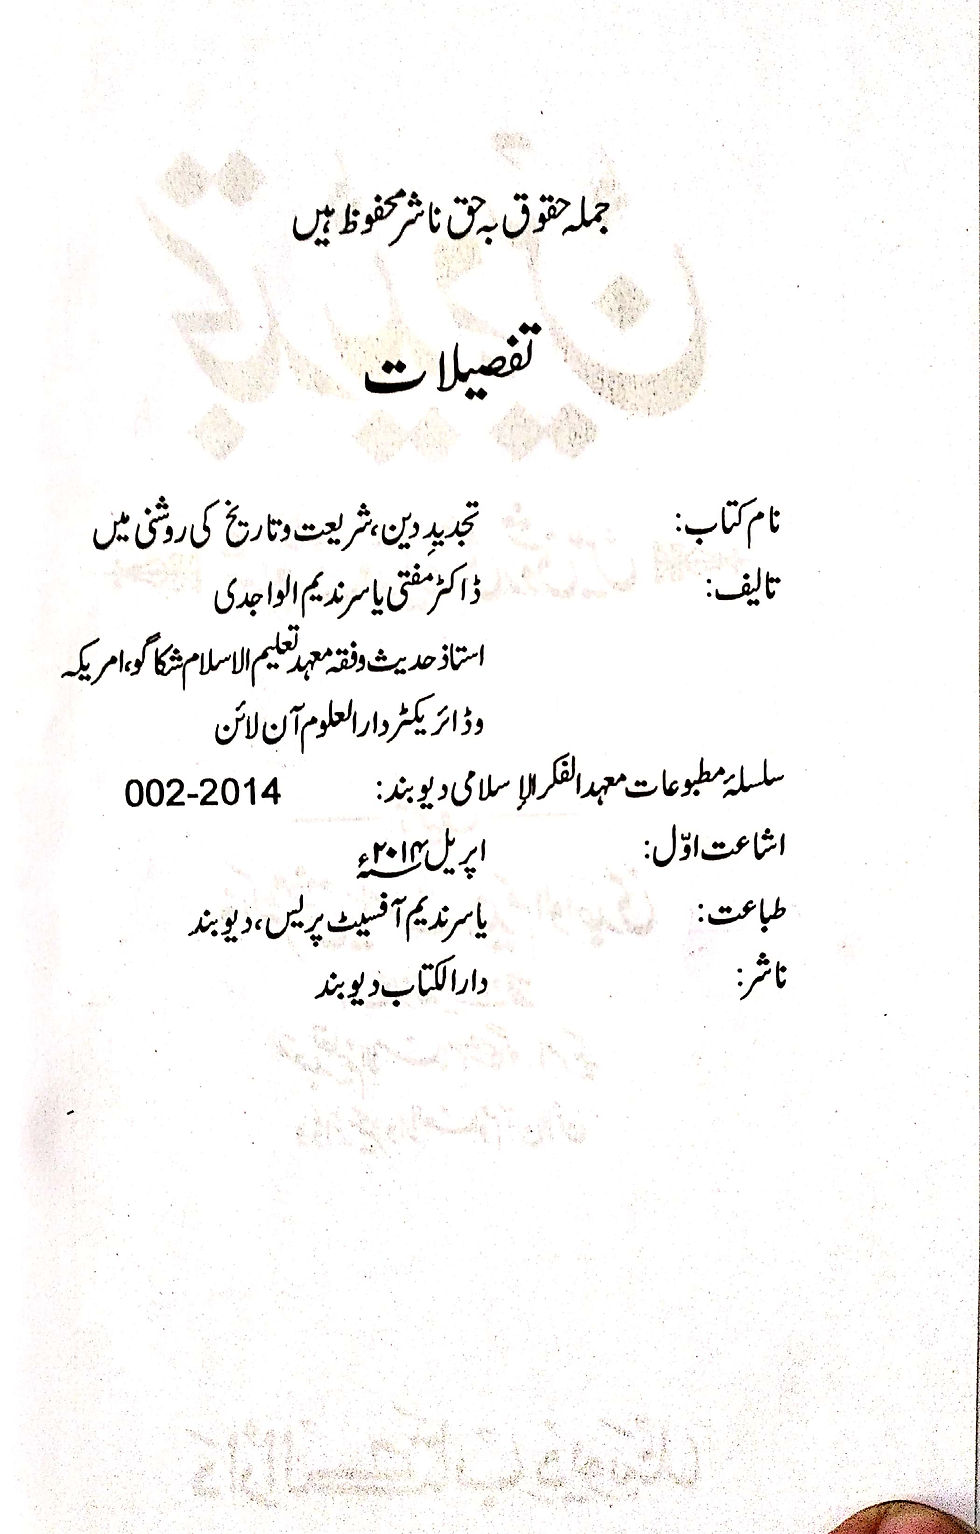 جملہ حقوق بہ حق ناشر محفوظ ہیں
تفصیلات
نام کتاب: تجدیدِ دین، شریعت و تاریخ کی روشنی میں
تالیف: ڈاکٹر مفتی یاسر ندیم الواجدی
استاذ حدیث وفقہ معہد تعلیم الاسلام شکاگو، امریکہ
وڈائریکٹر دارالعلوم آن لائن
سلسلۂ مطبوعات معہد الفکر الإسلامی دیوبند: 002-2014
اشاعت اوّل: اپریل ۲۰۱۴ء
طباعت: یاسر ندیم آفسیٹ پریس، دیوبند
ناشر: دارالکتاب دیوبند